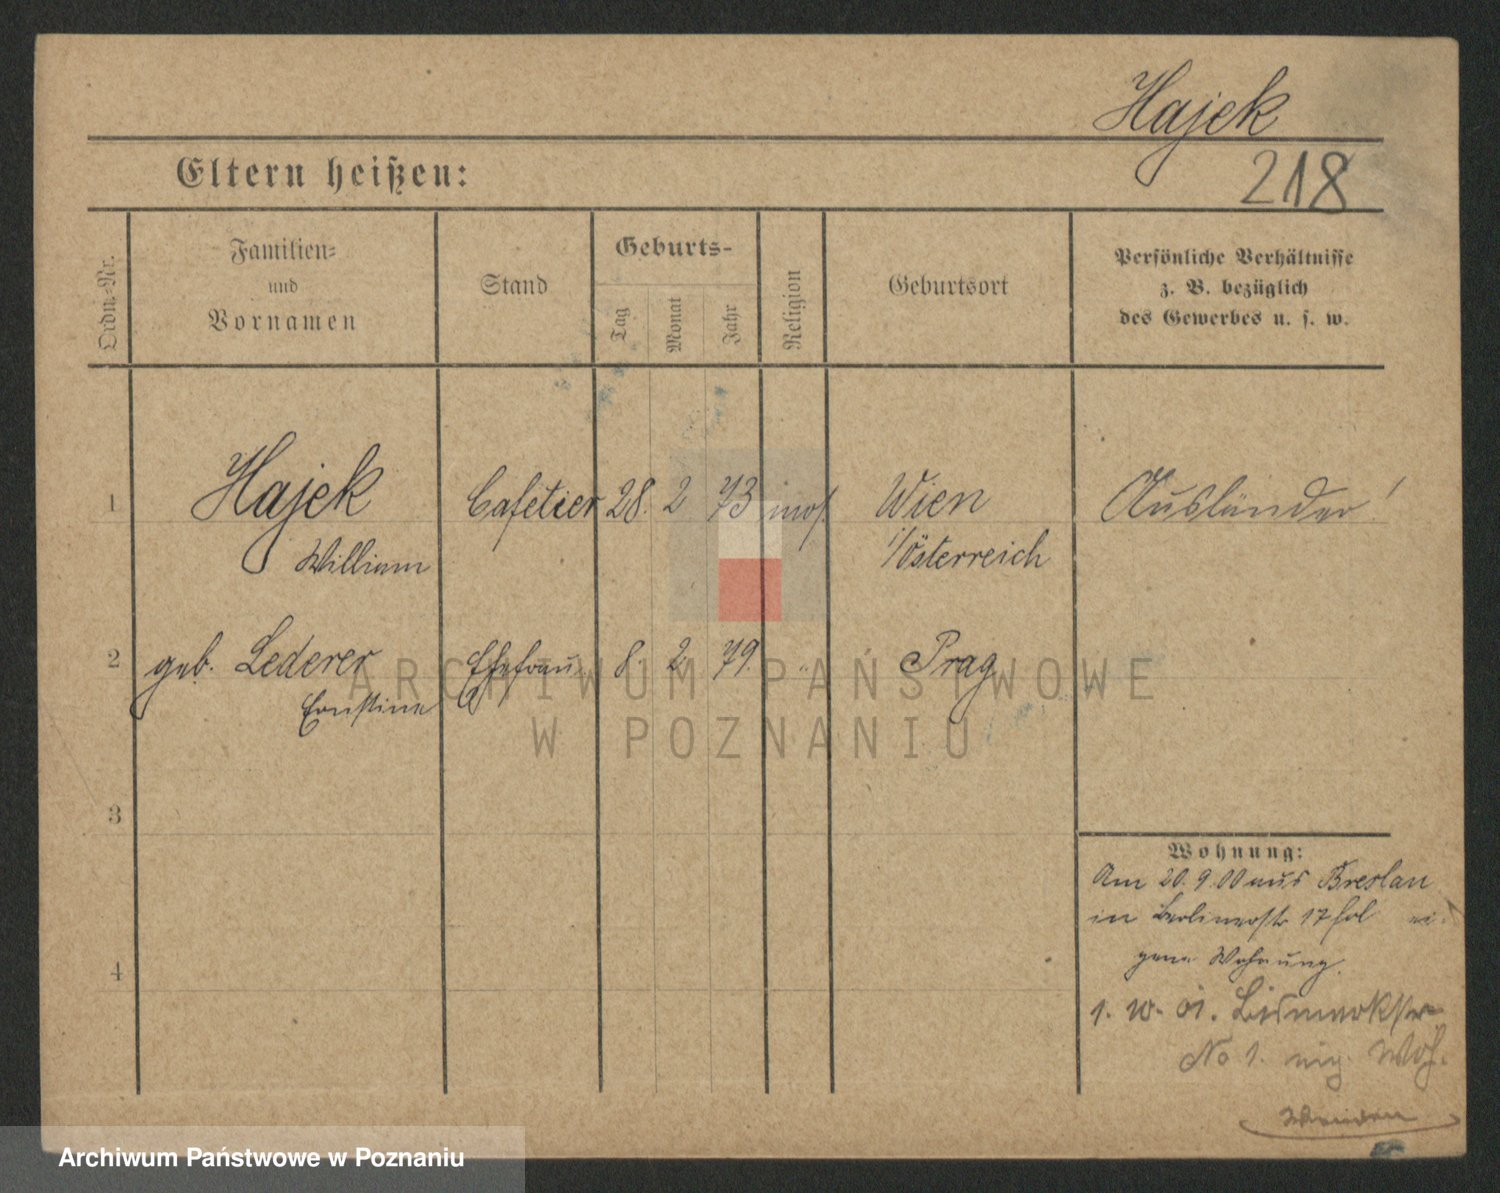 Hajek
218
Eltern heißen:
Ordn.-Nr.
Familien-
und
Vornamen
Stand
Geburts-
Tag
Monat
Jahr
Religion
Geburtsort
Persönliche Verhältnisse
z. B. bezüglich
des Gewerbes u. s. w.
1 Hajek Cafétier 28. 2 73 mos. Wien Ausländer!
William i/Österreich
2 geb. Lederer Ehefrau 8. 2. 79. " Prag
Ernstine
3
4
Wohnung:
Am 20.9.00 aus Breslau
in Berlinerstr 17 ei-
gene Wohnung.
1. 10. 01. Bismarkstr
No 1. eig. Woh.
Wenden
ARCHIWUM PAŃSTWOWE
W POZNANIU
Archiwum Państwowe w Poznaniu